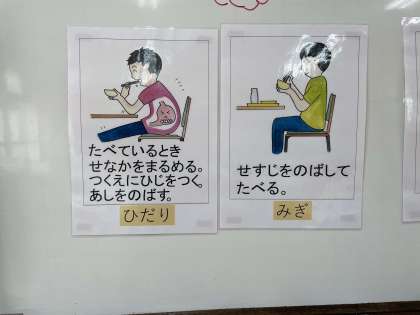 たべているとき
せなかをまるめる。
つくえにひじをつく。
あしをのばす。
ひだり
せすじをのばして
たべる。
みぎ